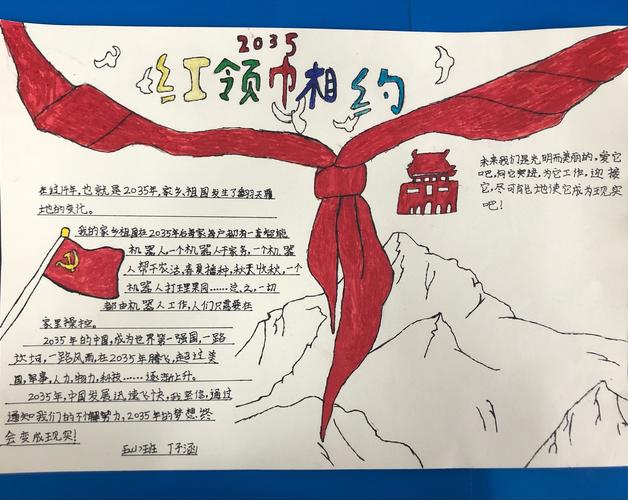 2035
红领巾相约
在过14年,也就是2035年,家乡,祖国发生了翻天覆
地的变化。
我的家乡祖国在2035年后每家每户都有一套智能
机器人,一个机器人干家务,一个机器
人帮干农活,春夏播种,秋天收秋,一个
机器人打理果园……总之,一切
都由机器人工作,人们只需要在
家里操控。
2035年的中国,成为世界第一强国,一路
坎坷,一路风雨,在2035年腾飞,超过美
国,军事,人力,物力,科技……逐渐上升。
2035年,中国发展迅速飞快,我坚信,通过
通知我们的不懈努力,2035年的梦想终
会变成现实!
五山班 丁子涵
未来我们是光明而美丽的,爱它
吧,向它突进,为它工作,迎接
它,尽可能地使它成为现实
吧!